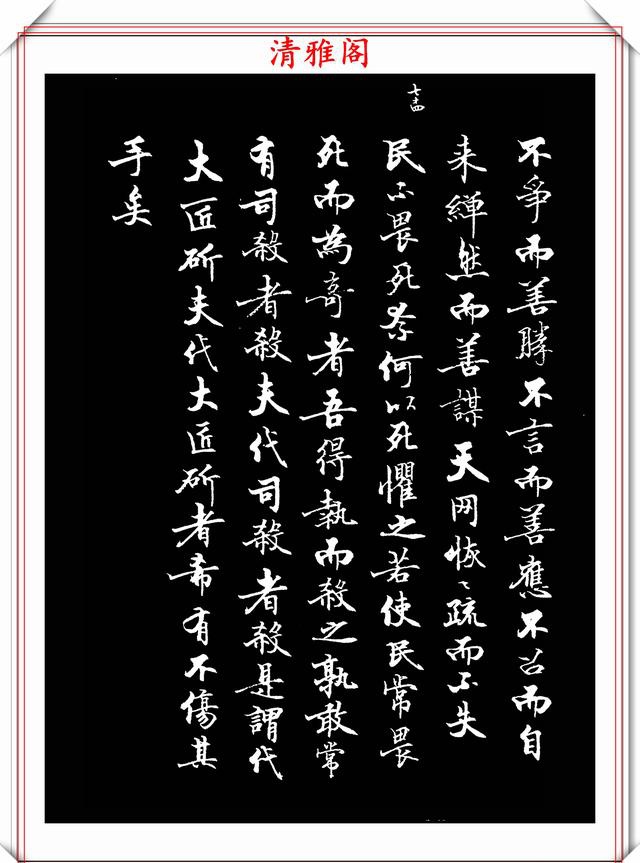 清雅阁
七十四
不爭而善勝不言而善應不召而自
来繟然而善謀天网恢〻疏而不失
民不畏死奈何以死懼之若使民常畏
死而為奇者吾得執而殺之孰敢常
有司殺者殺夫代司殺者殺是謂代
大匠斫夫代大匠斫者希有不傷其
手矣